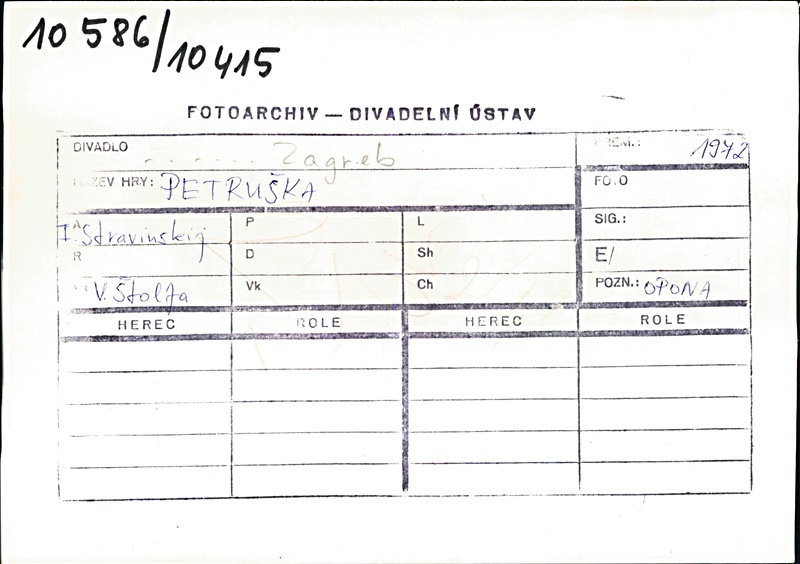 10 586/10415
FOTOARCHIV — DIVADELNÍ ÚSTAV
DIVADLO Zagreb
PREM.: 1972
NÁZEV HRY: PETRUŠKA
FOTO
A I. Stravinskij
P
L
SIG.:
R
D
Sh
E/
V. Štolfa
Vk
Ch
POZN.: OPONA
HEREC ROLE HEREC ROLE